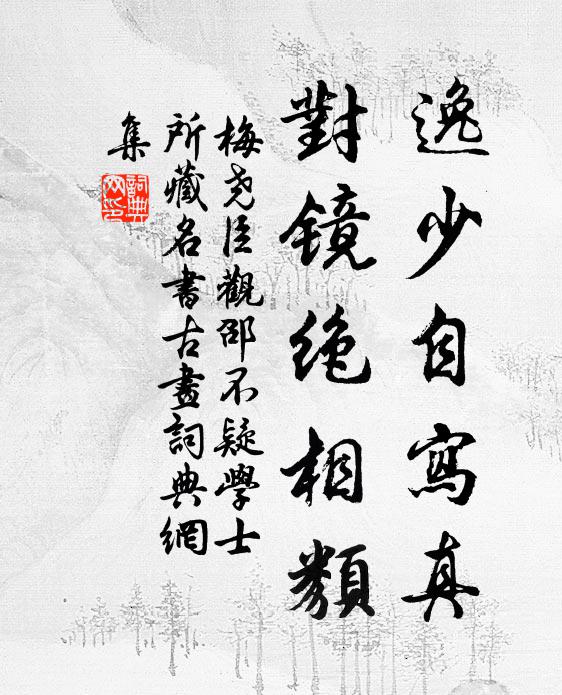 逸少自寫真
對鏡絕相類
梅尧臣觀邵不疑學士
所藏名書古畫詞典網
集
詞典网印